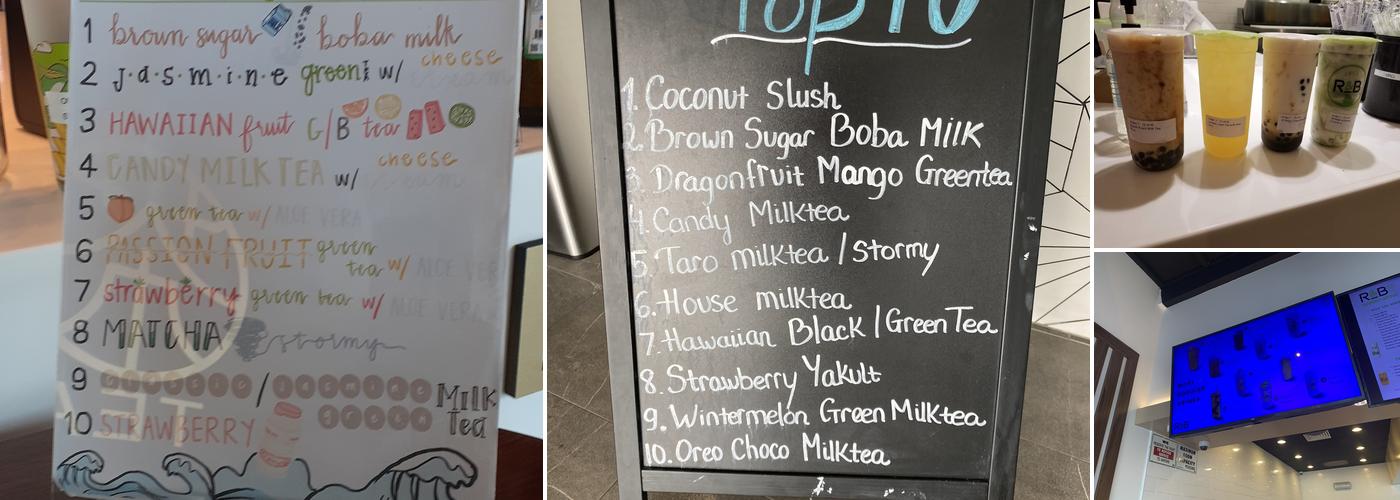 1 brown sugar boba milk
2 J·a·s·m·i·n·e green w/ cheese cream
3 HAWAIIAN fruit G/B tea
4 CANDY MILK TEA w/ cheese cream
5 green tea w/ ALOE VERA
6 PASSION FRUIT green tea w/ ALOE VERA
7 strawberry green tea w/ ALOE VERA
8 MATCHA stormy
9 CLASSIC / JASMINE GREEN MILK Tea
10 STRAWBERRY
Top 10
1. Coconut Slush
2. Brown Sugar Boba Milk
3. Dragonfruit Mango Greentea
4. Candy Milktea
5. Taro milktea / Stormy
6. House milktea
7. Hawaiian Black / Green Tea
8. Strawberry Yakult
9. Wintermelon Green Milktea
10. Oreo Choco Milktea
R B
R B